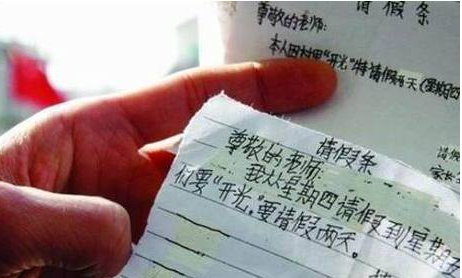 请假条
尊敬的老师:
本人因村里“开光”特请假两天(星期四
请假
家长
请假条
尊敬的老师:
我从星期四请假到星期五
们要“开光”,要请假两天。